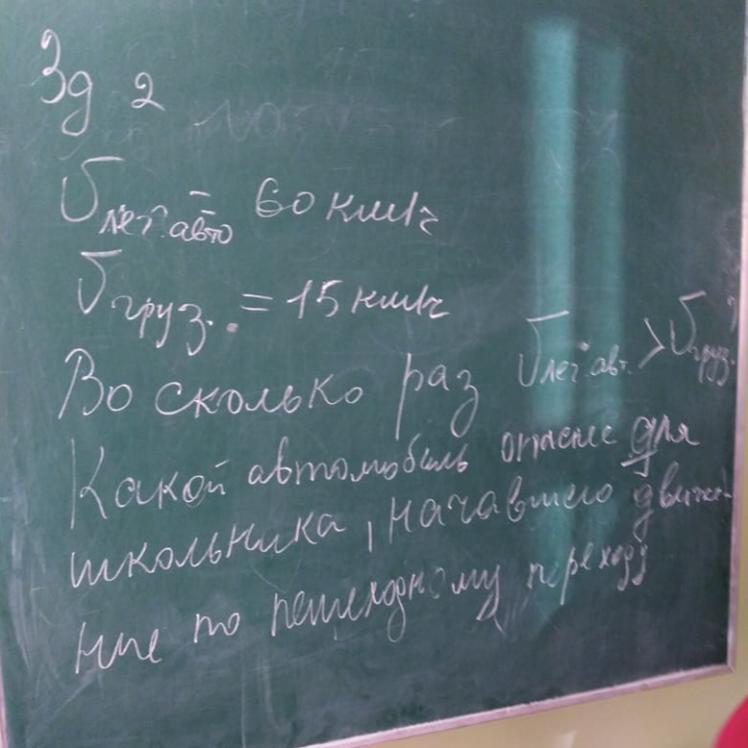 Зд 2
V лег. авто = 60 км/ч
V груз. = 15 км/ч
Во сколько раз V лег. авт. > V груз. ?
Какой автомобиль опаснее для
школьника, начавшего движе-
ние по пешеходному переходу